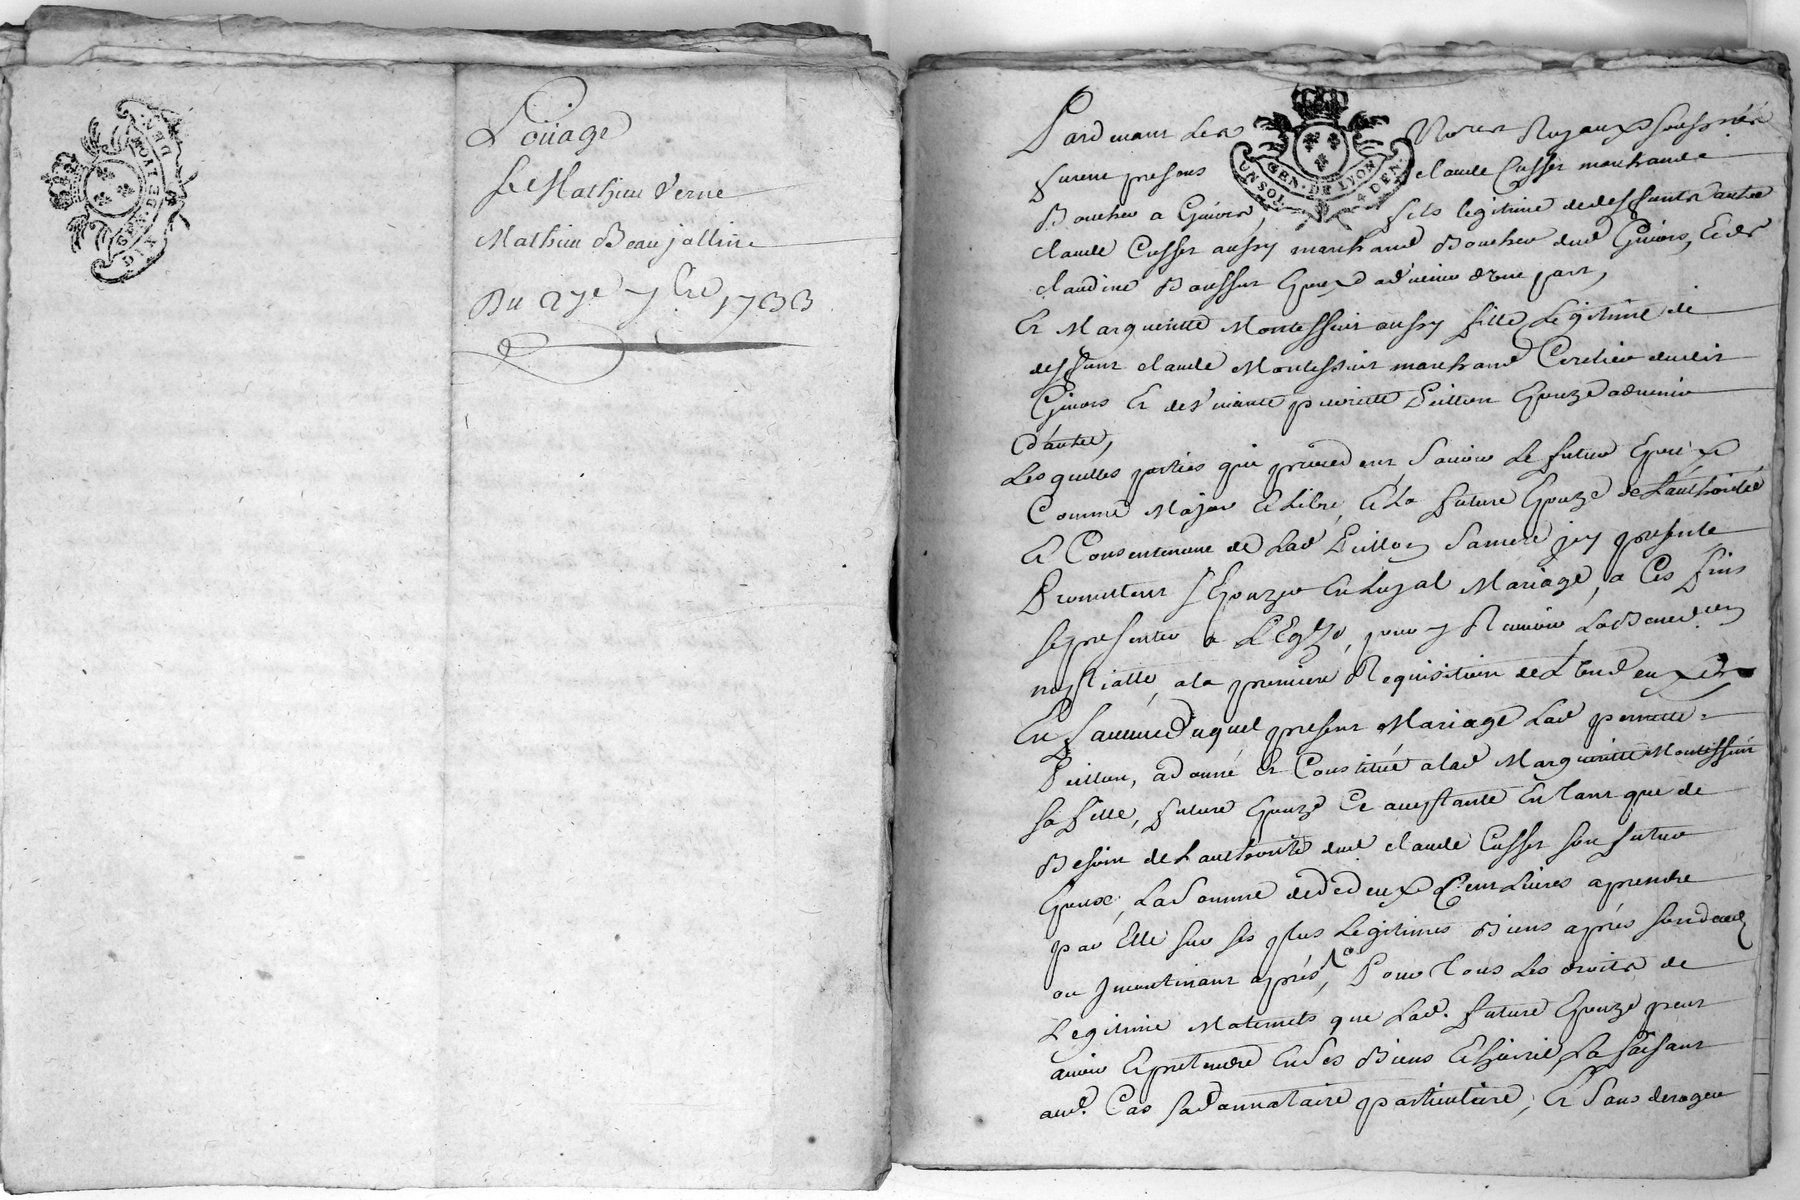 GEN. DE LYON
DEN.
Loüage
Sr Mathieu Verne
Mathieu Beaujollin
Du 27e 7bre 1733
GEN. DE LYON
4 DEN.
Pardevant Les Nores Royaux soussignés
furent presens claude Cusset marchand
Boucher a Givors, fils legitime de deffunts autre
claude Cusset aussy marchand Boucher dud Givors, Et de
claudine Bousset Epoux advenir d'Une part,
Et Margueritte Montessuit aussy fille Legitime de
deffunt claude Montessuit marchand dudit
Givors Et de vivante perrette Pitton Epouze advenir
d'autre,
Lesquelles parties qui procedent Scavoir Le futur Epoux
Comme Majeur Et Libre, Et La future Epouze de L'authorité
Et Consentement de Lad Pitton Sa mere jcy presente
Promettent S'Epouzer En Loyal Mariage, a Ces fins
se presenter a L'Eglize, pour y Recevoir La Bened.on
nuptialle, a la premiere Requisition de L'Un d'eux
En faveur duquel present Mariage Lad perrette
Pitton, a donné Et Constitué a lad Margueritte Montessuit
sa fille, future Epouze Ce acceptante En tant que de
Besoin de L'authorité dud claude Cusset son futur
Epoux, La Somme de deux Cent Livres a prendre
par Elle sur ses plus Legitimes Biens aprés son deced
ou jncontinant aprés, Pour tous Les droits de
Legitime Maternels que Lad. future Epouze peut
avoir Et pretendre En Ses Biens Et hoirie, La faisant
aud. Cas Sa donnataire particuliere, Et Sans deroger